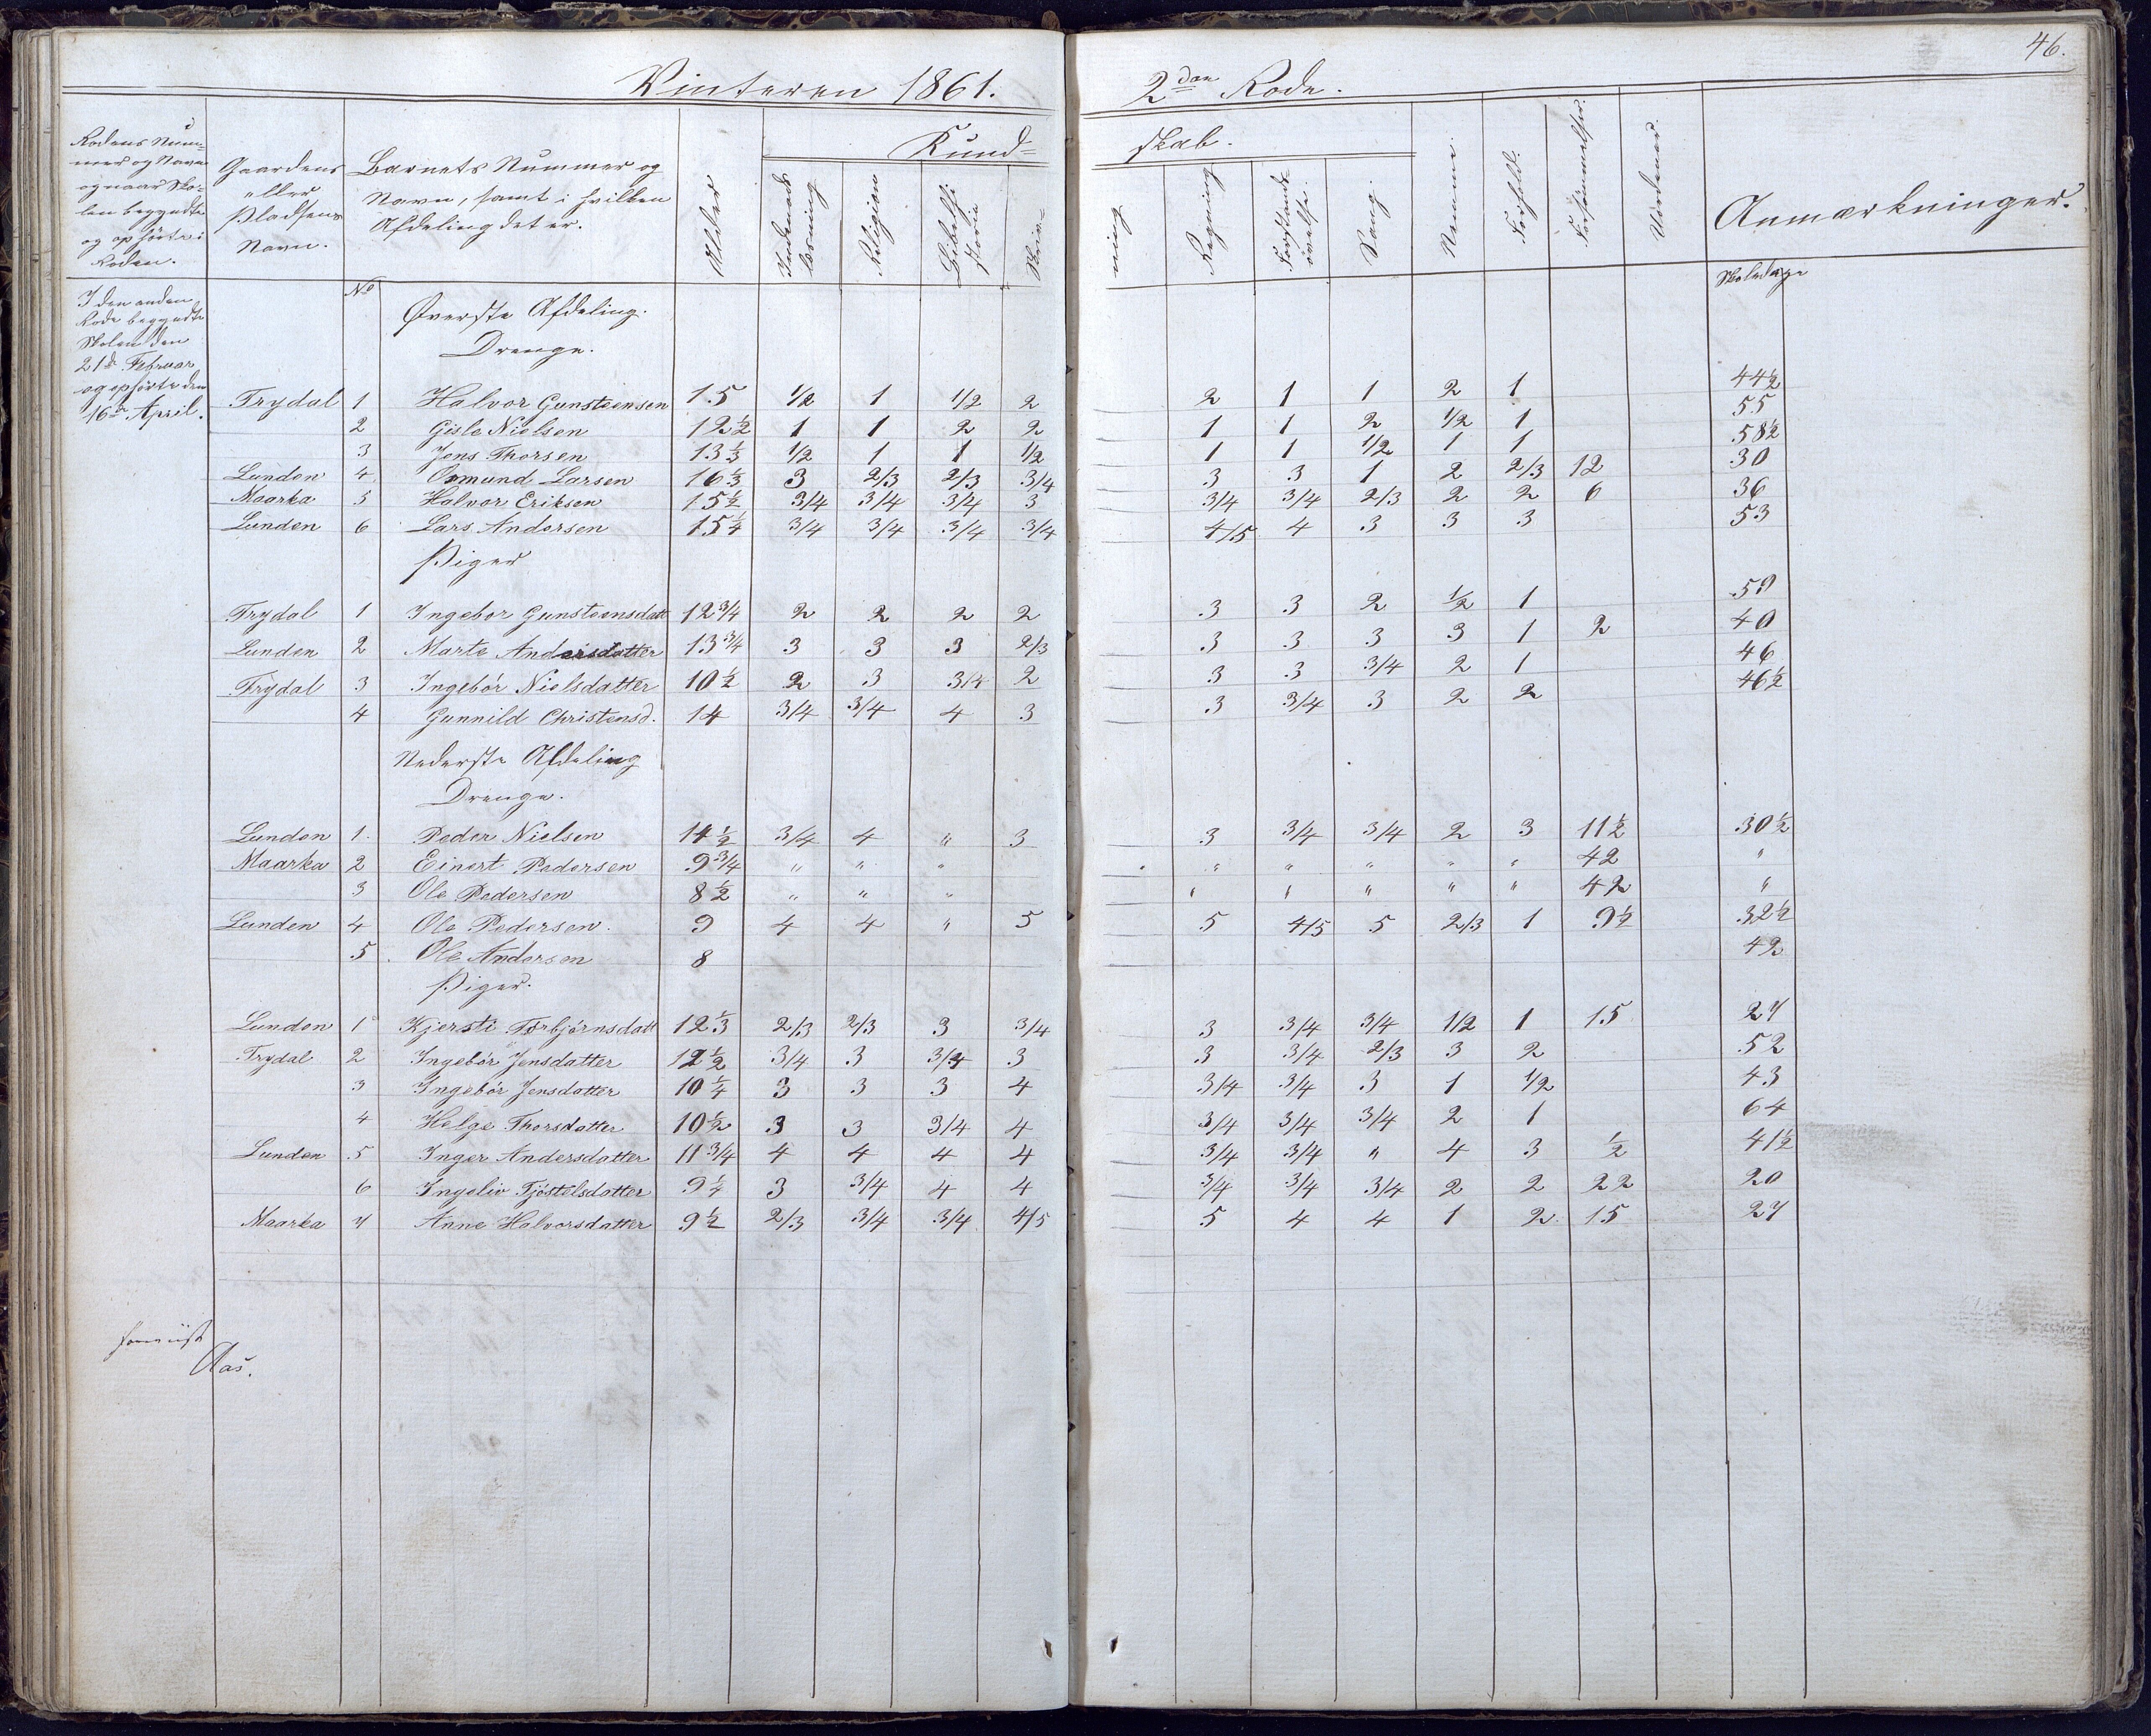 46.
Vinteren 1861. 2den Rode.
Rodens Num-
mer og Navn
og naar Sko-
len begyndte
og ophörte i
Roden.
Gaardens
eller
Pladsens
Navn.
Barnets Nummer og
Navn, samt i hvilken
Afdeling det er.
Alder
Kund- skab.
Indenads
læsning
Religion
Bibelhi
storie
Skriv- ning
Regning
Forstands
övelse.
Sang.
Nemme.
Forhold.
Forsömmelser.
Udeblevet.
Anmærkninger.
Skoledage
I den anden
Rode begyndte
Skolen den
21de Februar
og ophörte den
16de April.
No
Øverste Afdeling.
Drenge.
Trydal 1 Halvor Gunsteensen 15 1/2 1 1/2 2 2 1 1 2 1 44½
2 Gisle Nielsen 12½ 1 1 2 2 1 1 2 1/2 1 55
3 Jens Thorsen 13⅓ 1/2 1 1 1/2 1 1 1/2 1 1 58½
Lunden 4 Osmund Larsen 16⅓ 3 2/3 2/3 3/4 3 3 1 2 2/3 12 30
Maarka 5 Halvor Eriksen 15½ 3/4 3/4 3/4 3 3/4 3/4 2/3 2 2 6 36
Lunden 6 Lars Andersen 15¼ 3/4 3/4 3/4 3/4 4/5 4 3 3 3 53
Piger
Trydal 1 Ingebor Gunsteensdatt 12 3/4 2 2 2 2 3 3 2 1/2 1 59
Lunden 2 Marte Andersdatter 13 3/4 3 3 3 2/3 3 3 3 3 1 2 40
Trydal 3 Ingebör Nielsdatter 10½ 2 3 3/4 2 3 3 3/4 2 1 46
4 Gunnild Christensd. 14 3/4 3/4 4 3 3 3/4 3 2 2 46½
Nederste Afdeling
Drenge.
Lunden 1. Peder Nielsen 14½ 3/4 4 " 3 3 3/4 3/4 2 3 11½ 30½
Maarka 2 Einert Pedersen 9 3/4 " " " " " " " " 42 "
3 Ole Pedersen 8½ " " " " " " " " 42 "
Lunden 4 Ole Pedersen. 9 4 4 " 5 5 4/5 5 2/3 1 9½ 32½
5. Ole Andersen 8 42
Piger.
Lunden 1 Kjersti Torbjörnsdatt 12⅓ 2/3 2/3 3 3/4 3 3/4 3/4 1/2 1 15 27
Trydal 2 Ingebör Jensdatter 12½ 3/4 3 3/4 3 3 3/4 2/3 3 2 52
3 Ingebör Jensdatter 10¼ 3 3 3 4 3/4 3/4 3 1 1/2 43
4 Helge Thorsdatter 10½ 3 3 3/4 4 3/4 3/4 3/4 2 1 64
Lunden 5 Inger Andersdatter 11 3/4 4 4 4 4 3/4 3/4 " 4 3 ½ 41½
6 Ingeliv Tjöstelsdatter 9¼ 3 3/4 4 4 3/4 3/4 3/4 2 2 22 20
Maarka 7 Anne Halvorsdatter 9½ 2/3 3/4 3/4 4/5 5 4 4 1 2 15 27
Aas.